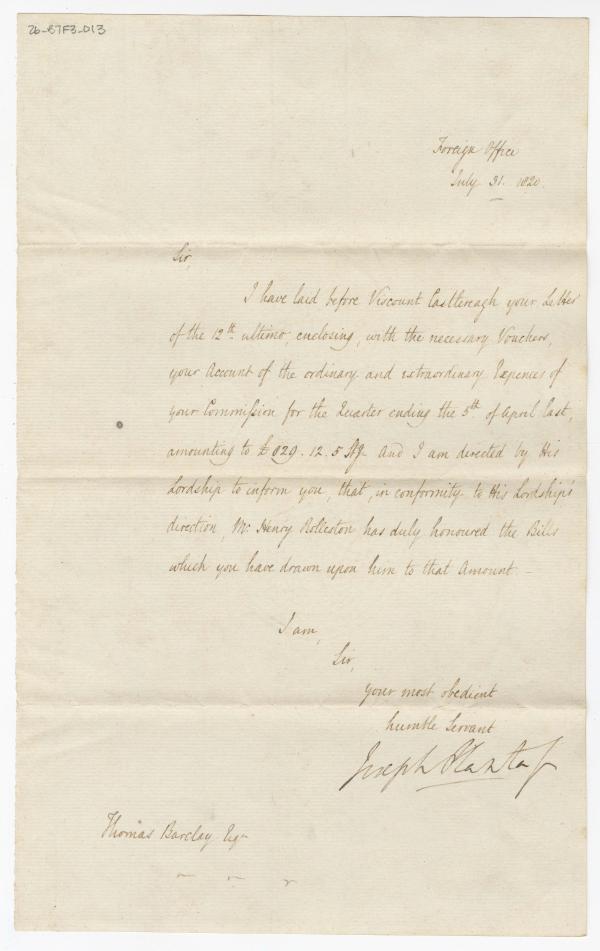 26-B7F3-013
Foreign Office
July 31. 1820.
Sir,
I have laid before Viscount Castlereagh your Letter
of the 12th. ultimo, enclosing, with the necessary Vouchers,
your Account of the ordinary and extraordinary Expences of
your Commission for the Quarter ending the 5th of April last,
amounting to £829. 12. 5 Stg. And I am directed by His
Lordship to inform you, that, in conformity to His Lordship's
direction, Mr. Henry Rolleston has duly honoured the Bills
which you have drawn upon him to that Amount –
I am,
Sir,
your most obedient
humble Servant
Joseph Planta Jr
Thomas Barclay Esqr